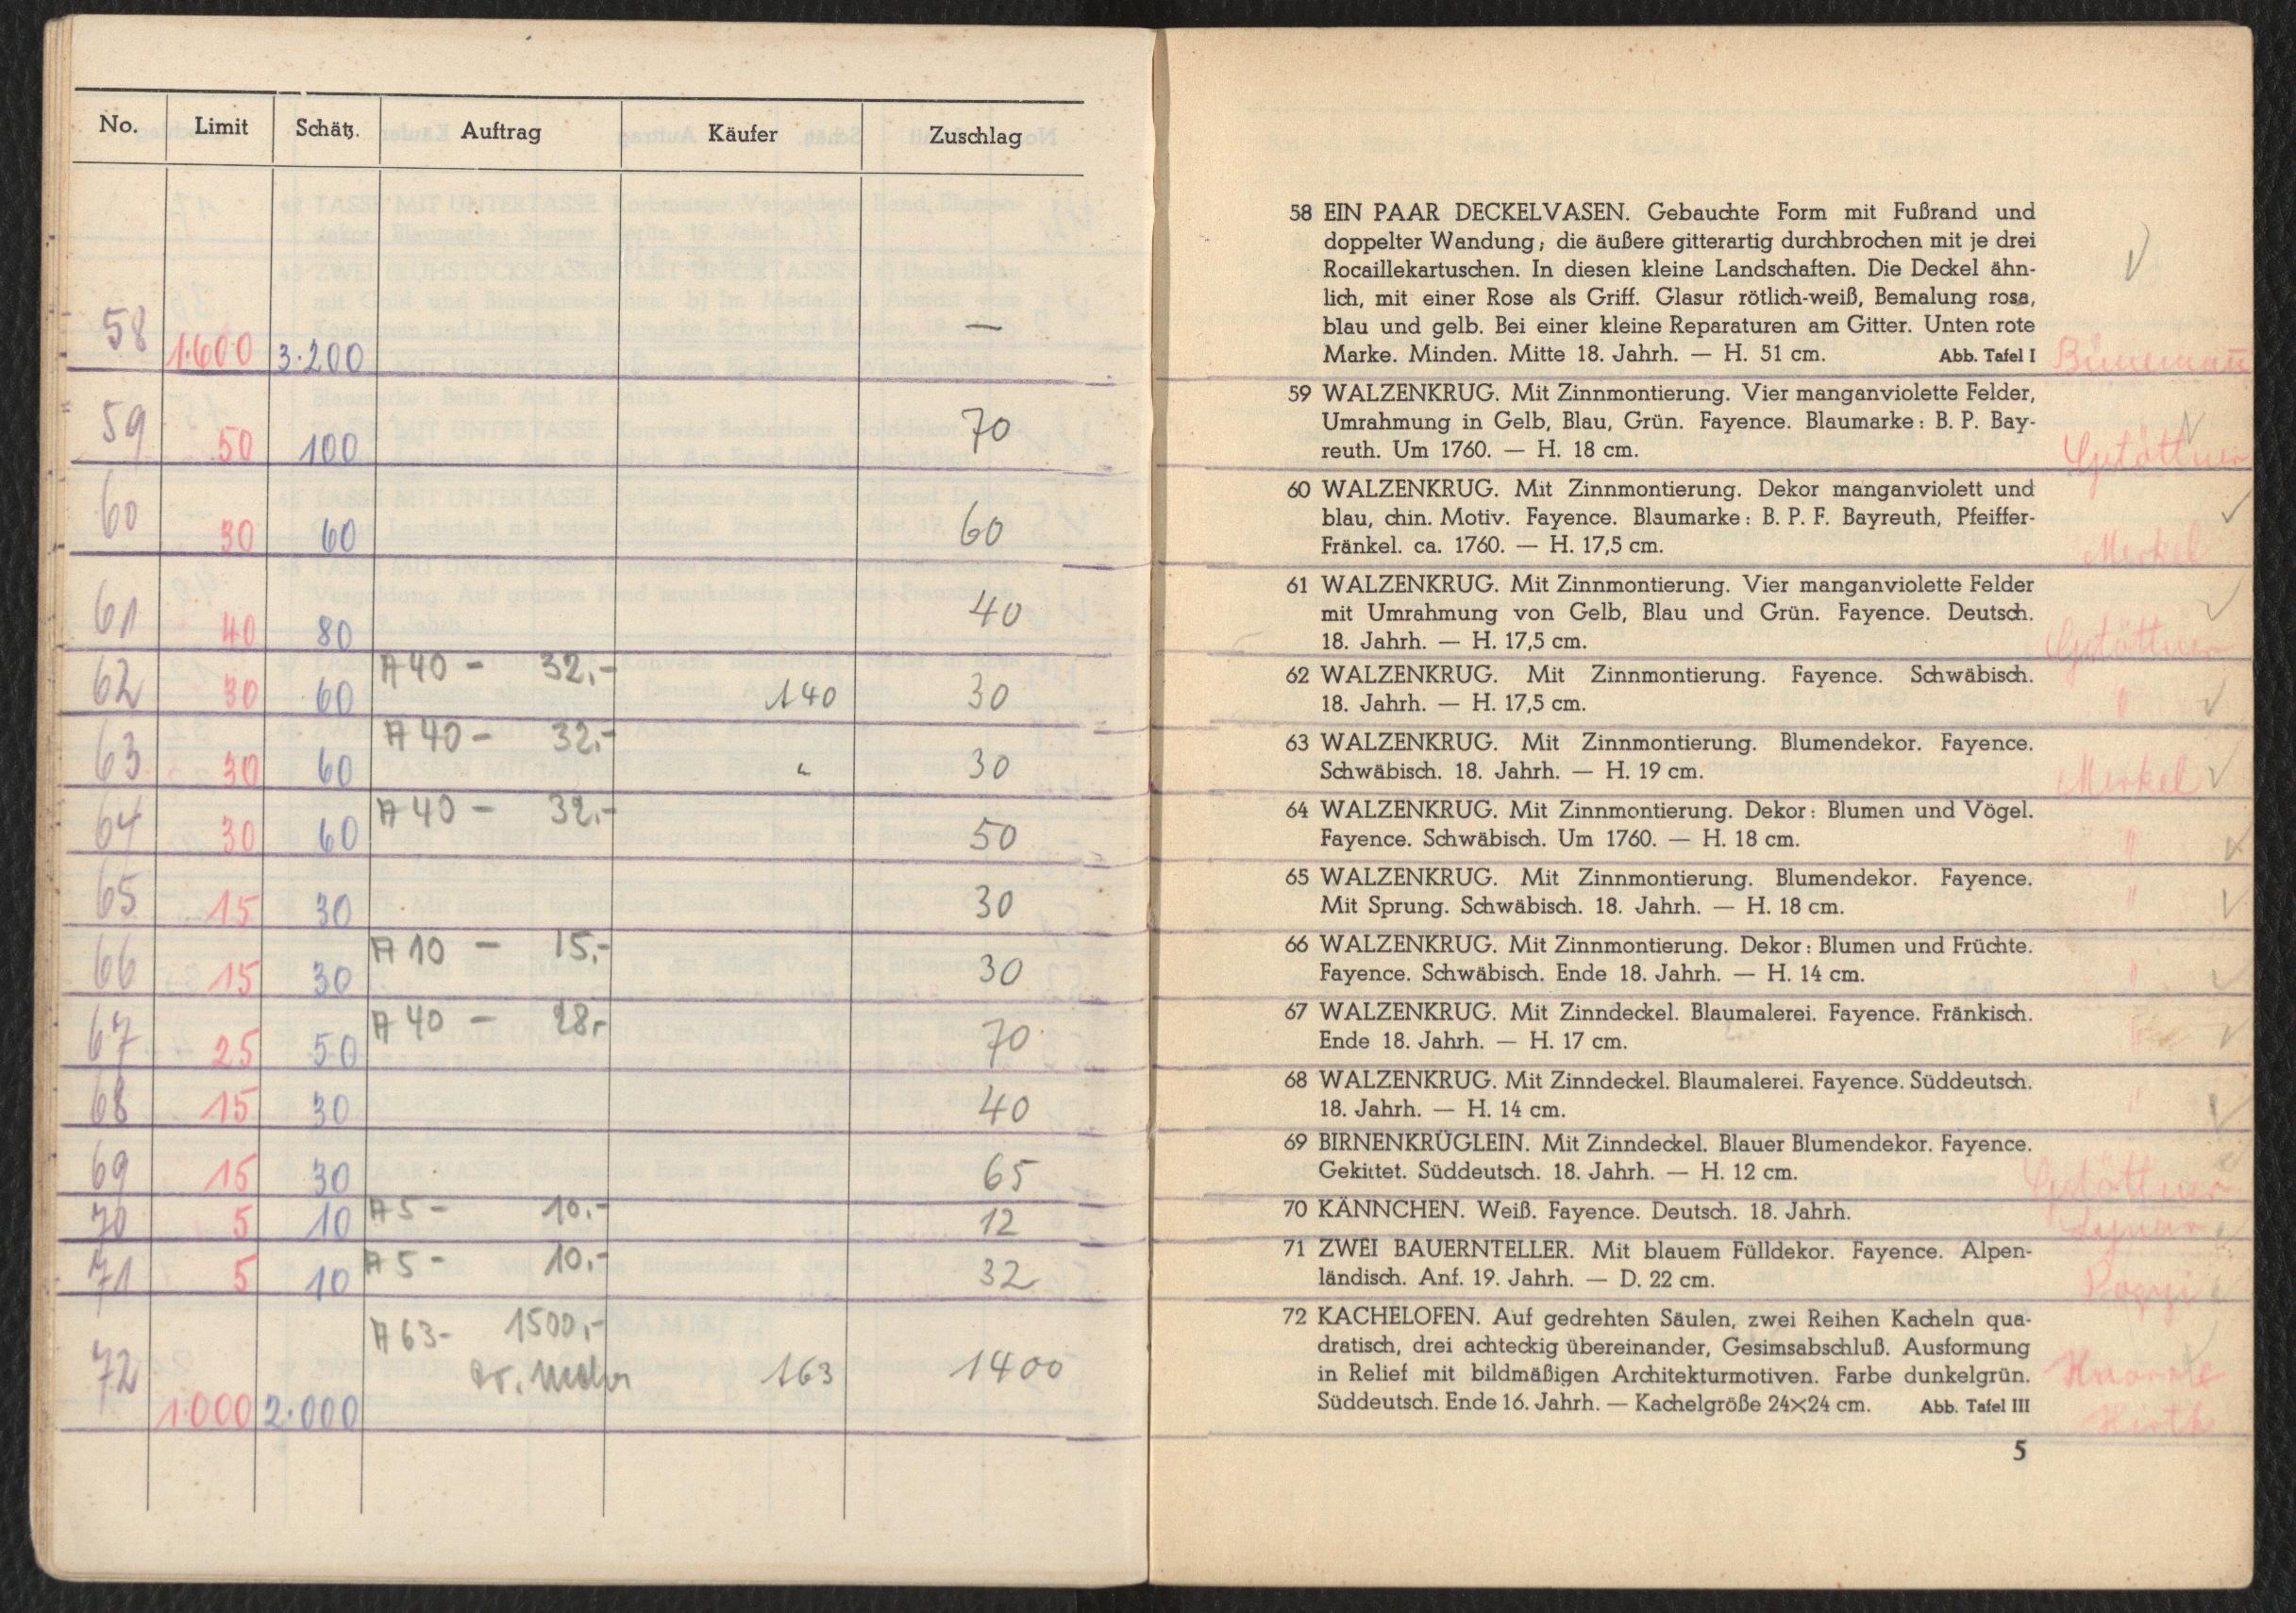 No. Limit Schätz. Auftrag Käufer Zuschlag
58 1.600 3.200 —
59 50 100 70
60 30 60 60
61 40 80 40
62 30 60 A 40 - 32.- 140 30
63 30 60 A 40 - 32.- " 30
64 30 60 A 40 - 32.- 50
65 15 30 30
66 15 30 A 10 - 15.- 30
67 25 50 A 40 - 28.- 70
68 15 30 40
69 15 30 65
70 5 10 A 5 - 10.- 12
71 5 10 A 5 - 10.- 32
72 1.000 2.000 A 63 - 1500.- 163 1400
58 EIN PAAR DECKELVASEN. Gebauchte Form mit Fußrand und
doppelter Wandung; die äußere gitterartig durchbrochen mit je drei
Rocaillekartuschen. In diesen kleine Landschaften. Die Deckel ähn-
lich, mit einer Rose als Griff. Glasur rötlich-weiß, Bemalung rosa,
blau und gelb. Bei einer kleine Reparaturen am Gitter. Unten rote
Marke. Minden. Mitte 18. Jahrh. — H. 51 cm. Abb. Tafel I
59 WALZENKRUG. Mit Zinnmontierung. Vier manganviolette Felder,
Umrahmung in Gelb, Blau, Grün. Fayence. Blaumarke: B. P. Bay-
reuth. Um 1760. — H. 18 cm. Gstöttner
60 WALZENKRUG. Mit Zinnmontierung. Dekor manganviolett und
blau, chin. Motiv. Fayence. Blaumarke: B. P. F. Bayreuth, Pfeiffer-
Fränkel. ca. 1760. — H. 17,5 cm. Merkel
61 WALZENKRUG. Mit Zinnmontierung. Vier manganviolette Felder
mit Umrahmung von Gelb, Blau und Grün. Fayence. Deutsch.
18. Jahrh. — H. 17,5 cm. Gstöttner
62 WALZENKRUG. Mit Zinnmontierung. Fayence. Schwäbisch.
18. Jahrh. — H. 17,5 cm. "
63 WALZENKRUG. Mit Zinnmontierung. Blumendekor. Fayence.
Schwäbisch. 18. Jahrh. — H. 19 cm. Merkel
64 WALZENKRUG. Mit Zinnmontierung. Dekor: Blumen und Vögel.
Fayence. Schwäbisch. Um 1760. — H. 18 cm. "
65 WALZENKRUG. Mit Zinnmontierung. Blumendekor. Fayence.
Mit Sprung. Schwäbisch. 18. Jahrh. — H. 18 cm. "
66 WALZENKRUG. Mit Zinnmontierung. Dekor: Blumen und Früchte.
Fayence. Schwäbisch. Ende 18. Jahrh. — H. 14 cm. "
67 WALZENKRUG. Mit Zinndeckel. Blaumalerei. Fayence. Fränkisch.
Ende 18. Jahrh. — H. 17 cm. "
68 WALZENKRUG. Mit Zinndeckel. Blaumalerei. Fayence. Süddeutsch.
18. Jahrh. — H. 14 cm. "
69 BIRNENKRÜGLEIN. Mit Zinndeckel. Blauer Blumendekor. Fayence.
Gekittet. Süddeutsch. 18. Jahrh. — H. 12 cm. Gstöttner
70 KÄNNCHEN. Weiß. Fayence. Deutsch. 18. Jahrh.
71 ZWEI BAUERNTELLER. Mit blauem Fülldekor. Fayence. Alpen-
ländisch. Anf. 19. Jahrh. — D. 22 cm.
72 KACHELOFEN. Auf gedrehten Säulen, zwei Reihen Kacheln qua-
dratisch, drei achteckig übereinander, Gesimsabschluß. Ausformung
in Relief mit bildmäßigen Architekturmotiven. Farbe dunkelgrün.
Süddeutsch. Ende 16. Jahrh. — Kachelgröße 24×24 cm. Abb. Tafel III Hirth
5